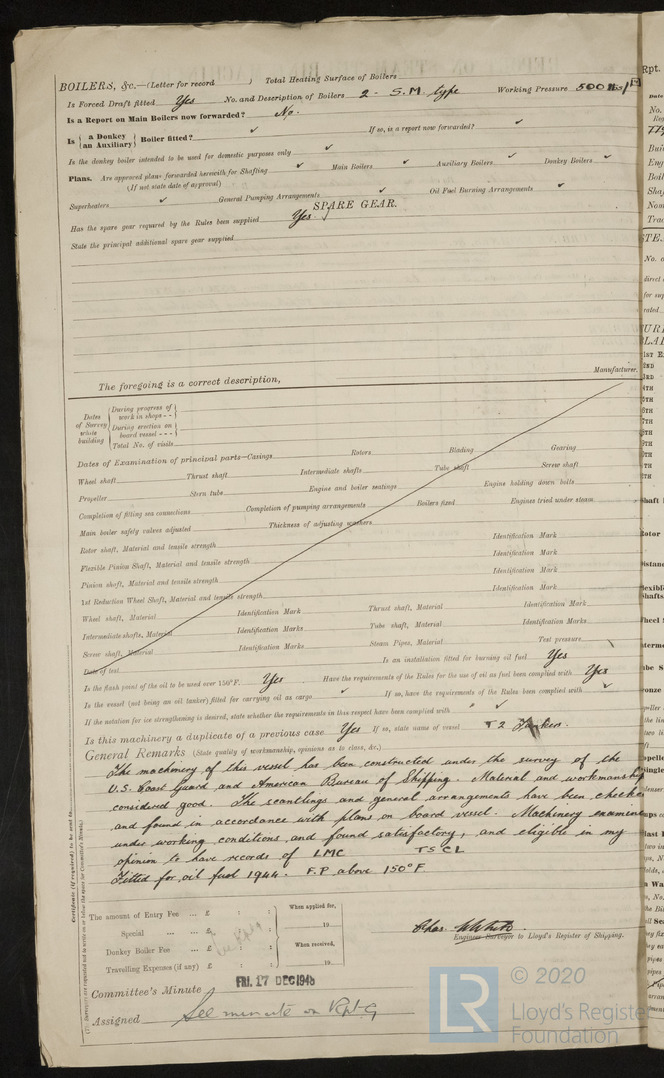 BOILERS, &c.—(Letter for record ) Total Heating Surface of Boilers
Is Forced Draft fitted Yes No. and Description of Boilers 2 - S.M. type Working Pressure 500
Is a Report on Main Boilers now forwarded? No.
Is { a Donkey / an Auxiliary } Boiler fitted? ✓ If so, is a report now forwarded? ✓
Is the donkey boiler intended to be used for domestic purposes only ✓
Plans. Are approved plans forwarded herewith for Shafting ✓ Main Boilers ✓ Auxiliary Boilers ✓ Donkey Boilers ✓
(If not state date of approval)
Superheaters ✓ General Pumping Arrangements ✓ Oil Fuel Burning Arrangements ✓
SPARE GEAR.
Has the spare gear required by the Rules been supplied Yes. ✓
State the principal additional spare gear supplied
Manufacturer.
The foregoing is a correct description,
Dates of Survey while building
During progress of work in shops - -
During erection on board vessel - - -
Total No. of visits
Dates of Examination of principal parts—Casings Rotors Blading Gearing
Wheel shaft Thrust shaft Intermediate shafts Tube shaft Screw shaft
Propeller Stern tube Engine and boiler seatings Engine holding down bolts
Completion of fitting sea connections Completion of pumping arrangements Boilers fixed Engines tried under steam
Main boiler safety valves adjusted Thickness of adjusting washers
Rotor shaft, Material and tensile strength Identification Mark
Flexible Pinion Shaft, Material and tensile strength Identification Mark
Pinion shaft, Material and tensile strength Identification Mark
1st Reduction Wheel Shaft, Material and tensile strength Identification Mark
Wheel shaft, Material Identification Mark Thrust shaft, Material Identification Mark
Intermediate shafts, Material Identification Marks Tube shaft, Material Identification Marks
Screw shaft, Material Identification Marks Steam Pipes, Material Test pressure
Date of test Is an installation fitted for burning oil fuel Yes
Is the flash point of the oil to be used over 150°F. Yes Have the requirements of the Rules for the use of oil as fuel been complied with Yes
Is the vessel (not being an oil tanker) fitted for carrying oil as cargo ✓ If so, have the requirements of the Rules been complied with ✓
If the notation for ice strengthening is desired, state whether the requirements in this respect have been complied with " ✓
Is this machinery a duplicate of a previous case Yes If so, state name of vessel T 2 Tanker.
General Remarks (State quality of workmanship, opinions as to class, &c.)
The machinery of this vessel has been constructed under the survey of the
U.S. Coast Guard and American Bureau of Shipping. Material and workmanship
considered good. The scantlings and general arrangements have been checke
and found in accordance with plans on board vessel. Machinery examine
under working conditions and found satisfactory, and eligible in my
opinion to have records of LMC TS CL
Fitted for oil fuel 1944. F.P. above 150°F.
The amount of Entry Fee ... £ : : When applied for,
Special ... ... £ : : 19
Donkey Boiler Fee ... £ : : When received,
Travelling Expenses (if any) £ : : 19
Chas.
Engineer Surveyor to Lloyd's Register of Shipping.
Committee's Minute FRI. 17 DEC 1948
Assigned See minute on Rpt. 9
Certificate (if required) to be sent to
© 2020
Lloyd's Register
Foundation
LR
Rpt.